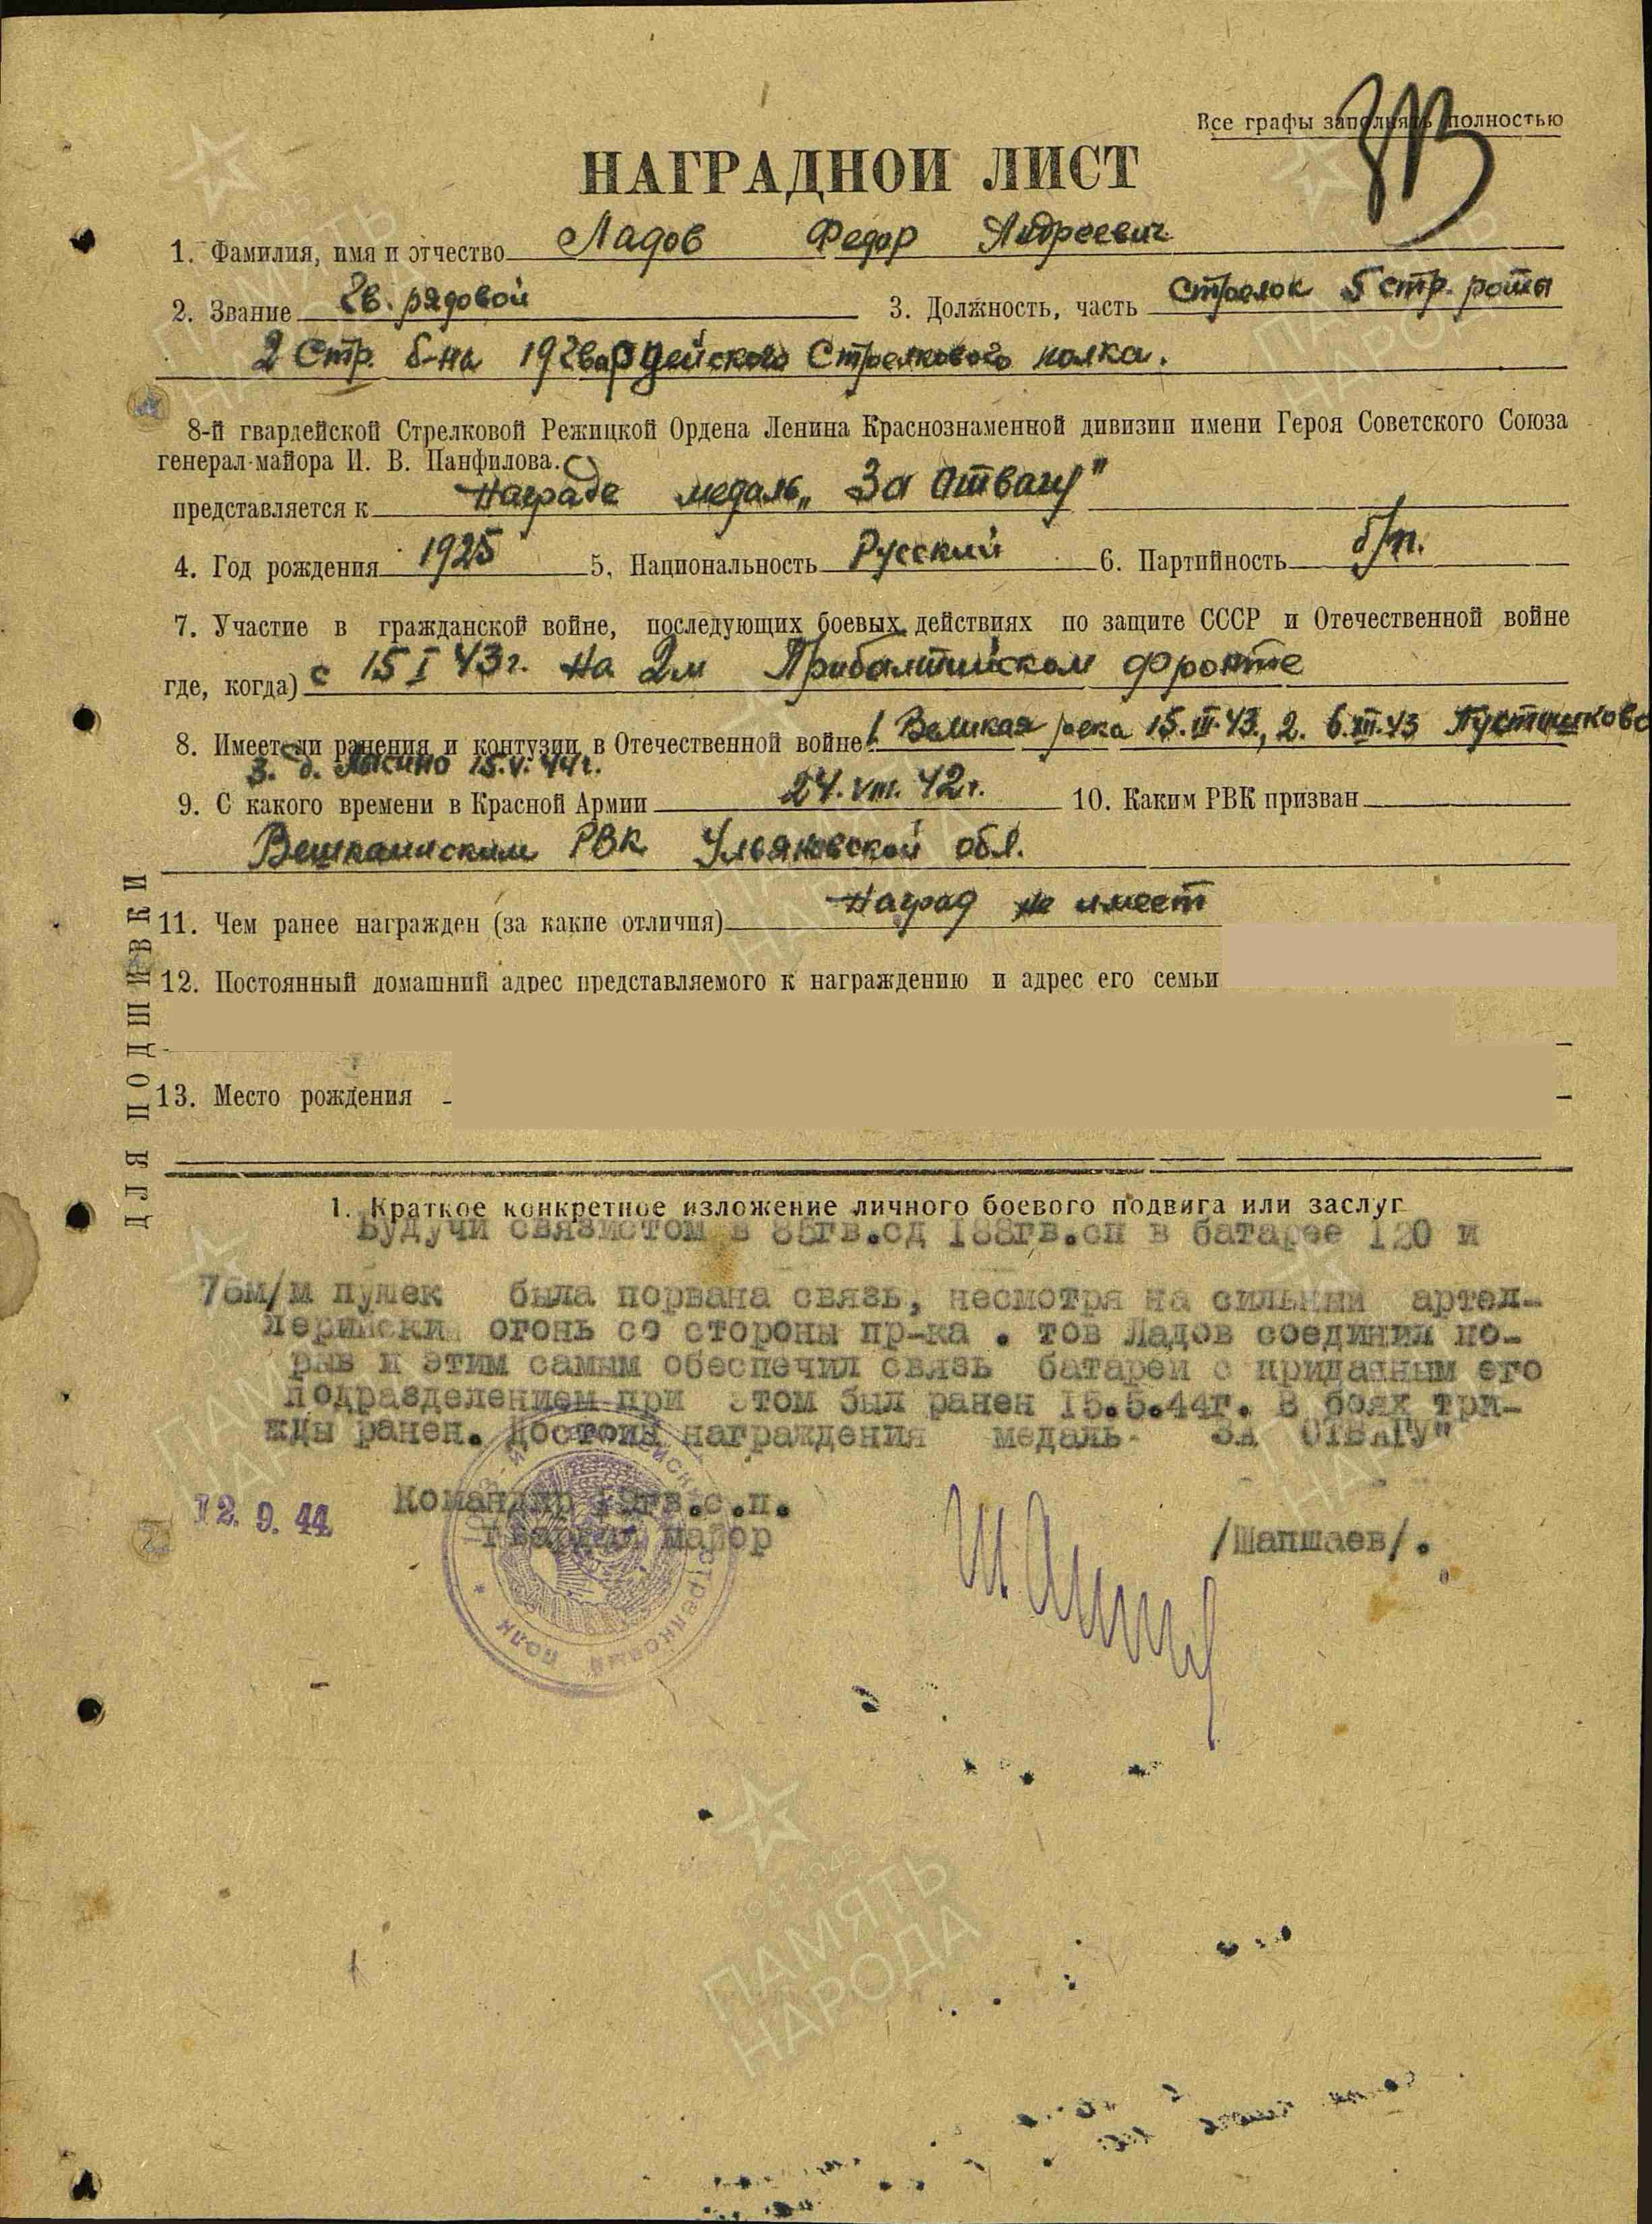 Все графы заполнять полностью
НАГРАДНОЙ ЛИСТ
1. Фамилия, имя и отчество Ладов Федор Андреевич
2. Звание Гв. рядовой 3. Должность, часть Стрелок 5 стр. роты
2 Стр. б-на 19 Гвардейского Стрелкового полка.
8-й гвардейской Стрелковой Режицкой Ордена Ленина Краснознаменной дивизии имени Героя Советского Союза
генерал-майора И. В. Панфилова.
представляется к Награде медаль „За Отвагу"
4. Год рождения 1925 5. Национальность Русский 6. Партийность б/п.
7. Участие в гражданской войне, последующих боевых действиях по защите СССР и Отечественной войне
где, когда) с 15 I 43г. на 2м Прибалтийском фронте
8. Имеет ли ранения и контузии в Отечественной войне 1. Великая река 15.III.43., 2. 6.III.43 Пустошково
3. д. Лысино 15.V.44г.
9. С какого времени в Красной Армии 24.VIII.42г. 10. Каким РВК призван
Вешкаимским РВК Ульяновской обл.
11. Чем ранее награжден (за какие отличия) Наград не имеет
12. Постоянный домашний адрес представляемого к награждению и адрес его семьи
13. Место рождения
ДЛЯ ПОДШИВКИ
1. Краткое конкретное изложение личного боевого подвига или заслуг
Будучи связистом в 85гв.сд 188гв.сп в батарее 120 и
76м/м пушек была порвана связь, несмотря на сильный артел-
лерийски огонь со стороны пр-ка . тов Ладов соединил по-
рыв и этим самым обеспечил связь батареи с приданным его
подразделением при этом был ранен 15.5.44г. В боях три-
жды ранен. Достоин награждения медаль- ЗА ОТВАГУ"
12.9.44 Командир 19гв.с.п.
гвардии майор /Шапшаев/.
СТРЕЛКОВЫЙ ПОЛК
ПАМЯТЬ
НАРОДА